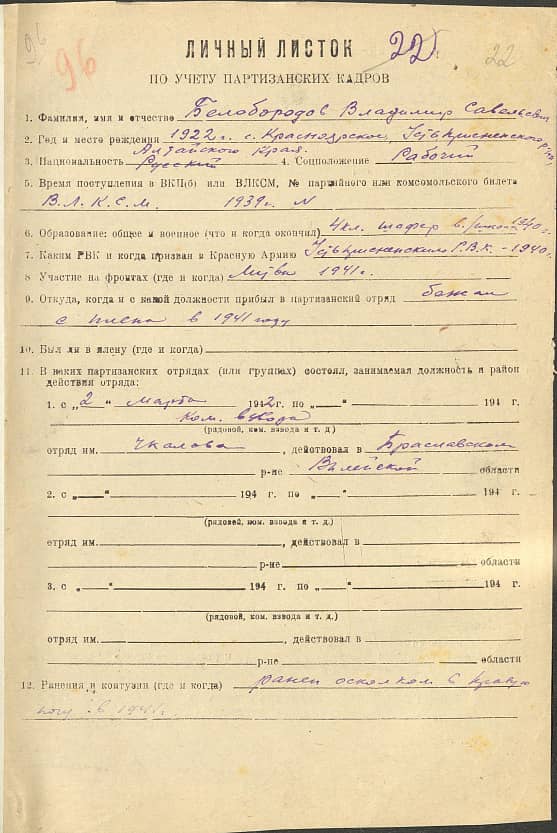 96 96 22 22
ЛИЧНЫЙ ЛИСТОК
ПО УЧЕТУ ПАРТИЗАНСКИХ КАДРОВ
1. Фамилия, имя и отчество Белобородов Владимир Савельевич
2. Год и место рождения 1922 г. с. Краснояркое, Усть-Пристанского р-на,
Алтайского Края.
3. Национальность Русский 4. Соцположение Рабочий
5. Время поступления в ВКП(б) или ВЛКСМ, № партийного или комсомольского билета
В.Л.К.С.М. 1939 г. N
6. Образование: общее и военное (что и когда окончил) 4 кл. шофер в. 1940 г.
7. Каким РВК и когда призван в Красную Армию Усть-Пристанским Р.В.К. - 1940 г.
8 Участие на фронтах (где и когда) Литва 1941 г.
9. Откуда, когда и с какой должности прибыл в партизанский отряд бежал
с плена в 1941 году
10. Был ли в плену (где и когда)
11. В каких партизанских отрядах (или группах) состоял, занимаемая должность и район
действия отряда:
1. с „2“ марта 1942 г. по „ “ 194 г.
Ком. взвода
(рядовой, ком. взвода и т. д.)
отряд им. Чкалова, действовал в Браславском
р-не Вилейской области
2. с „ “ 194 г. по „ “ 194 г.
(рядовой, ком. взвода и т. д.)
отряд им. , действовал в
р-не области
3. с „ “ 194 г. по „ “ 194 г.
(рядовой, ком. взвода и т. д.)
отряд им. , действовал в
р-не области
12. Ранения и контузии (где и когда) ранен осколком в правую
ногу в 1941 г.